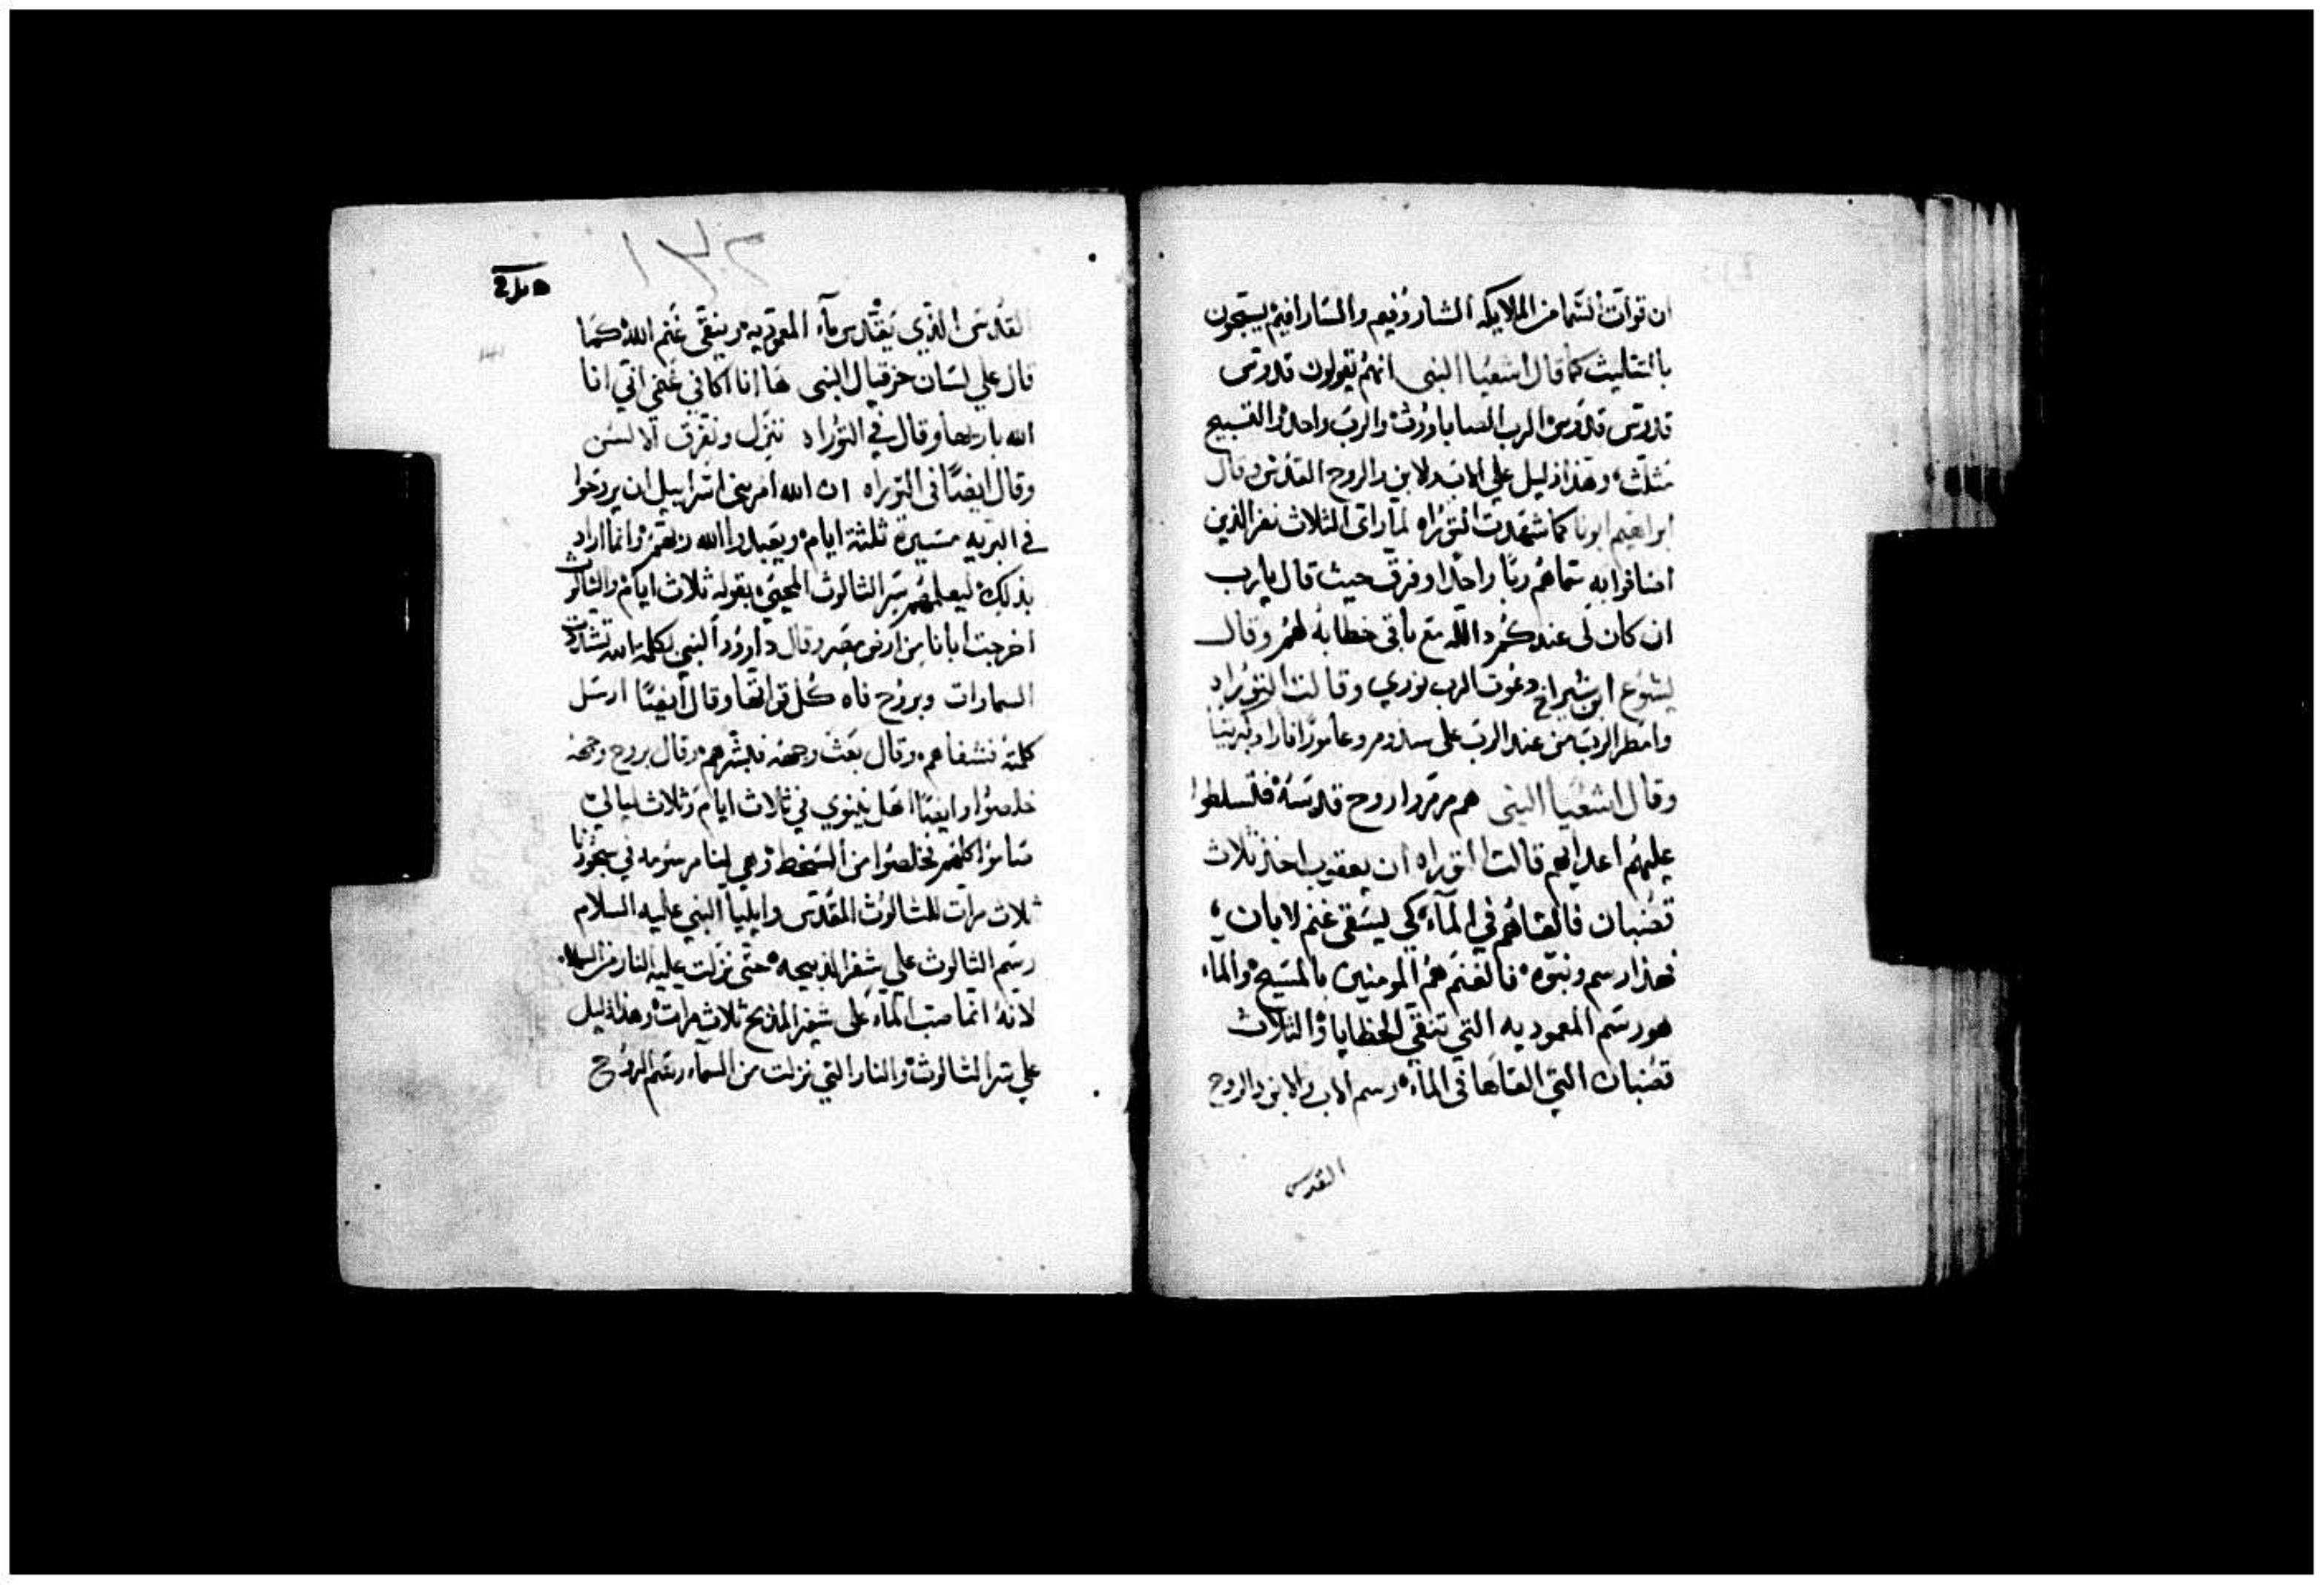 ان قوات السما من الملايكه الشاروفيم والسارافيم يسبحون
بالتثليث كما قال اشعيا النبى انهم يقولون قدوس
قدوس قدوس الرب الصاباووت والرب واحد والتسبيح
مثلث وهذا دليل علي الاب والابن والروح القدس وقال
ابراهيم ابونا كما شهدت التوراه لما راى الثلاث نفر الذين
اضافوا به سماهم ربا واحدا وفرق حيث قال يارب
ان كان لى عندكم داله مع باقى خطابه لهم وقال
يشوع ابن شيراخ دعوت الرب وقالت التوراه
وامطر الرب من عند الرب على سدوم وعامورا نارا وكبريتا
وقال اشعيا النبى هم مرمروا روح قدسه فتسلطوا
عليهم اعدايهم قالت التوراه ان يعقوب اخذ ثلاث
قضبان فالقاهم في المآء كي يسقي غنم لابان
فهذا رسم ونبوه فالغنم هم المومنين بالمسيح والمآء
هو رسم المعموديه التي تنقي الخطايا والثلاث
قضبان التي القاها في المآء رسم الاب والابن والروح
القدس
١٣٢
القدس الذي يقدس مآء المعموديه وينقي غنم الله كما
قال علي لسان حزقيال النبى ها انا اكافي غنمي انا
الله باريها وقال في التوراه ننزل ونفرق الالسن
وقال ايضا في التوراه ان الله امر بني اسراييل ان يردخوا
في البريه مسيرة ثلثة ايام ويعبدوا الله ربهم وانما اراد
بذلك ليعلمهم سر الثالوث المحيي بقوله ثلاث ايام والثالوث
اخرجت ابانا من ارض مصر وقال داوود النبي بكلمة الله تشددت
السماوات وبروح فاه كل قواتها وقال ايضا ارسل
كلمته فشفاهم وقال بعث وجهه فبشرهم وقال بروح وجهه
خلصوا وايضا اهل نينوي في ثلاث ايام وثلاث ليالي
صاموا كلهم تخلصوا من السخط وهي لينا مرسومه في سجودنا
ثلاث مرات للثالوث المقدس وايليا النبي عليه السلام
رسم الثالوث علي شفر الذبيحه حتى نزلت عليه النار من السما
لانه انما صب المآء على شفر المذبح ثلاث مرات وهذا دليل
علي سر الثالوث والنار التي نزلت من السمآء رسم الروح